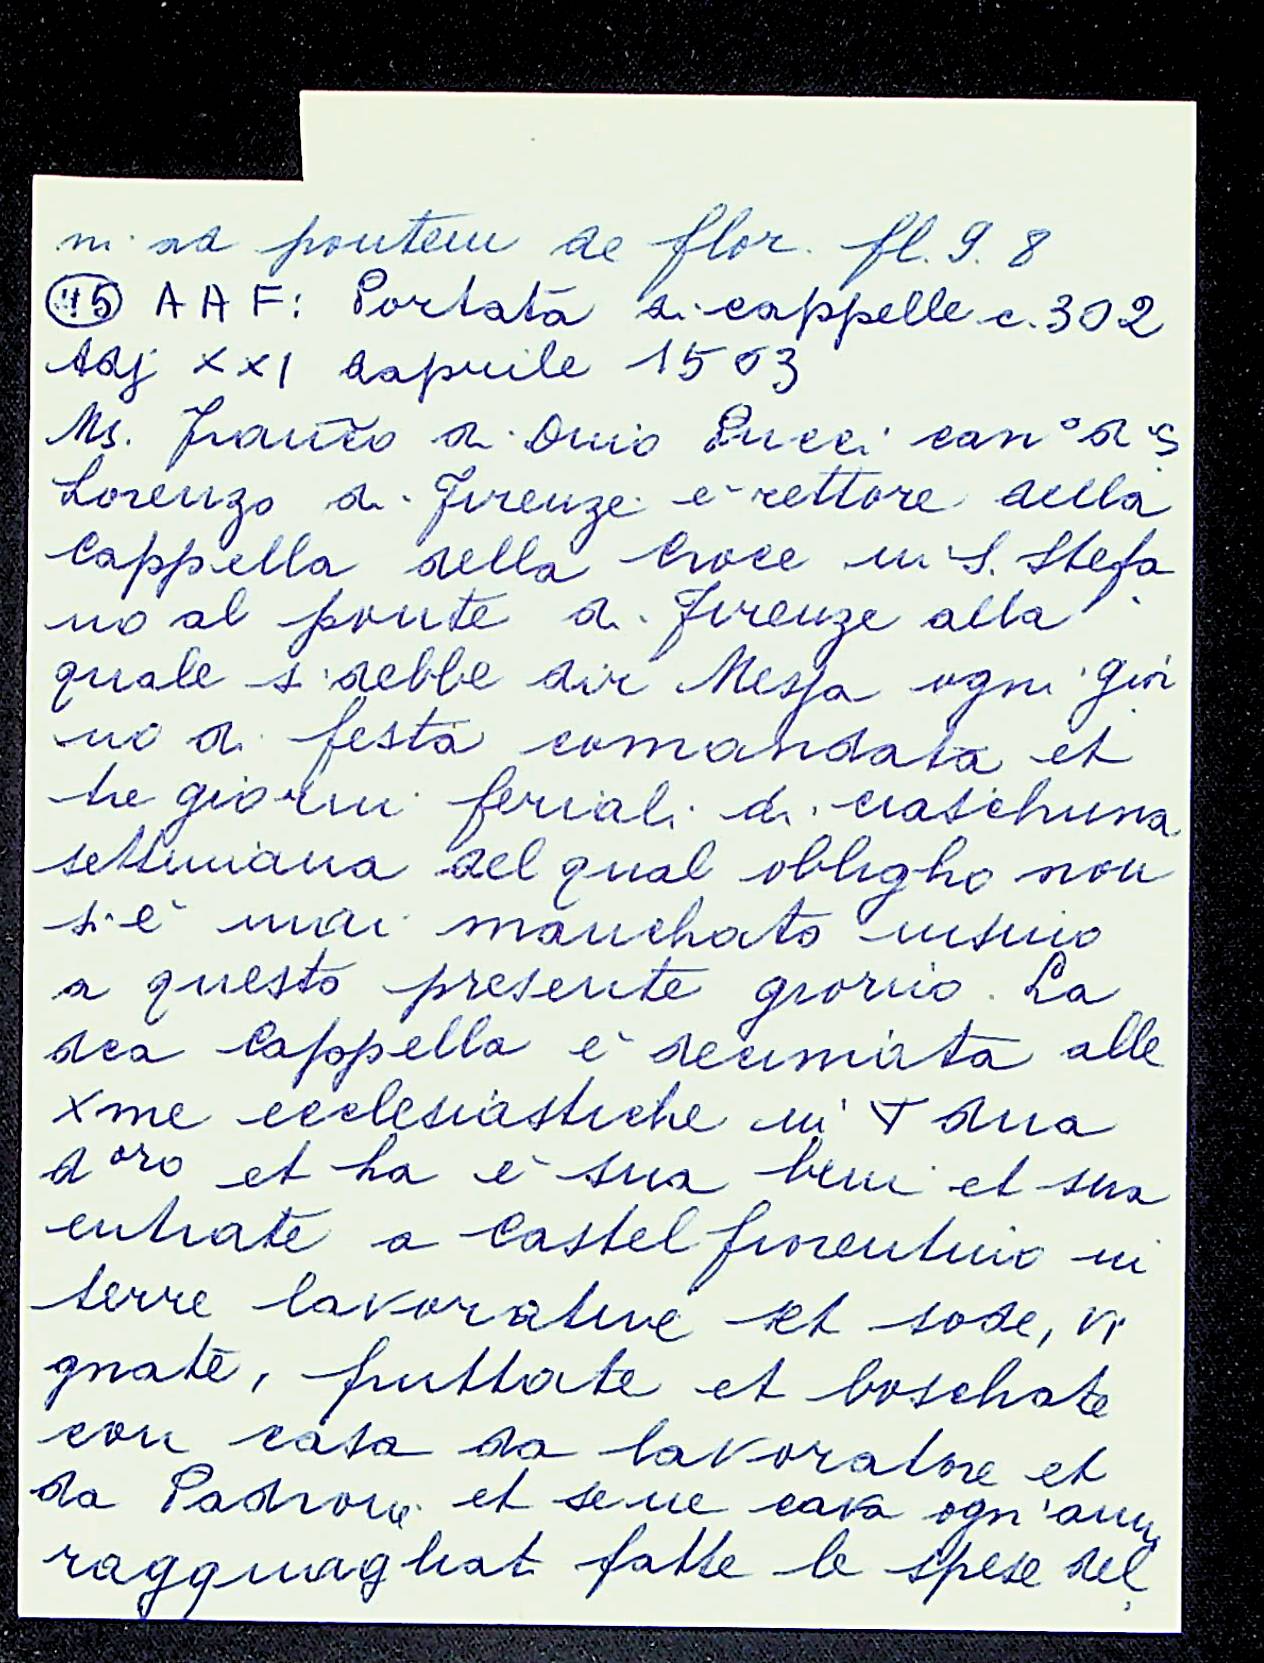 m. ad pontem de flor. fl. 9. 8
45 A A F: Portata di cappelle c. 302
Adj XXI daprile 1503
Ms. Franco di Dnio Pucci can° di S
Lorenzo di Firenze è rettore della
Cappella della Croce in S. Stefa
no al ponte di Firenze alla
quale si debbe dir Messa ogni gior
no di festa comandata et
tre giorni feriali di ciaschuna
settimana del qual obligho non
si è mai manchato insino
a questo presente giorno. La
dca Cappella è decimata alle
Xme ecclesiastiche in dua
d'oro et ha e sua beni et sua
entrate a Castelfiorentino in
terre lavorative et sode, vi
gnate, fruttate et boschate
con casa da lavoratore et
da Padrone et se ne cava ogn'anno
ragguagliati fatte le spese del